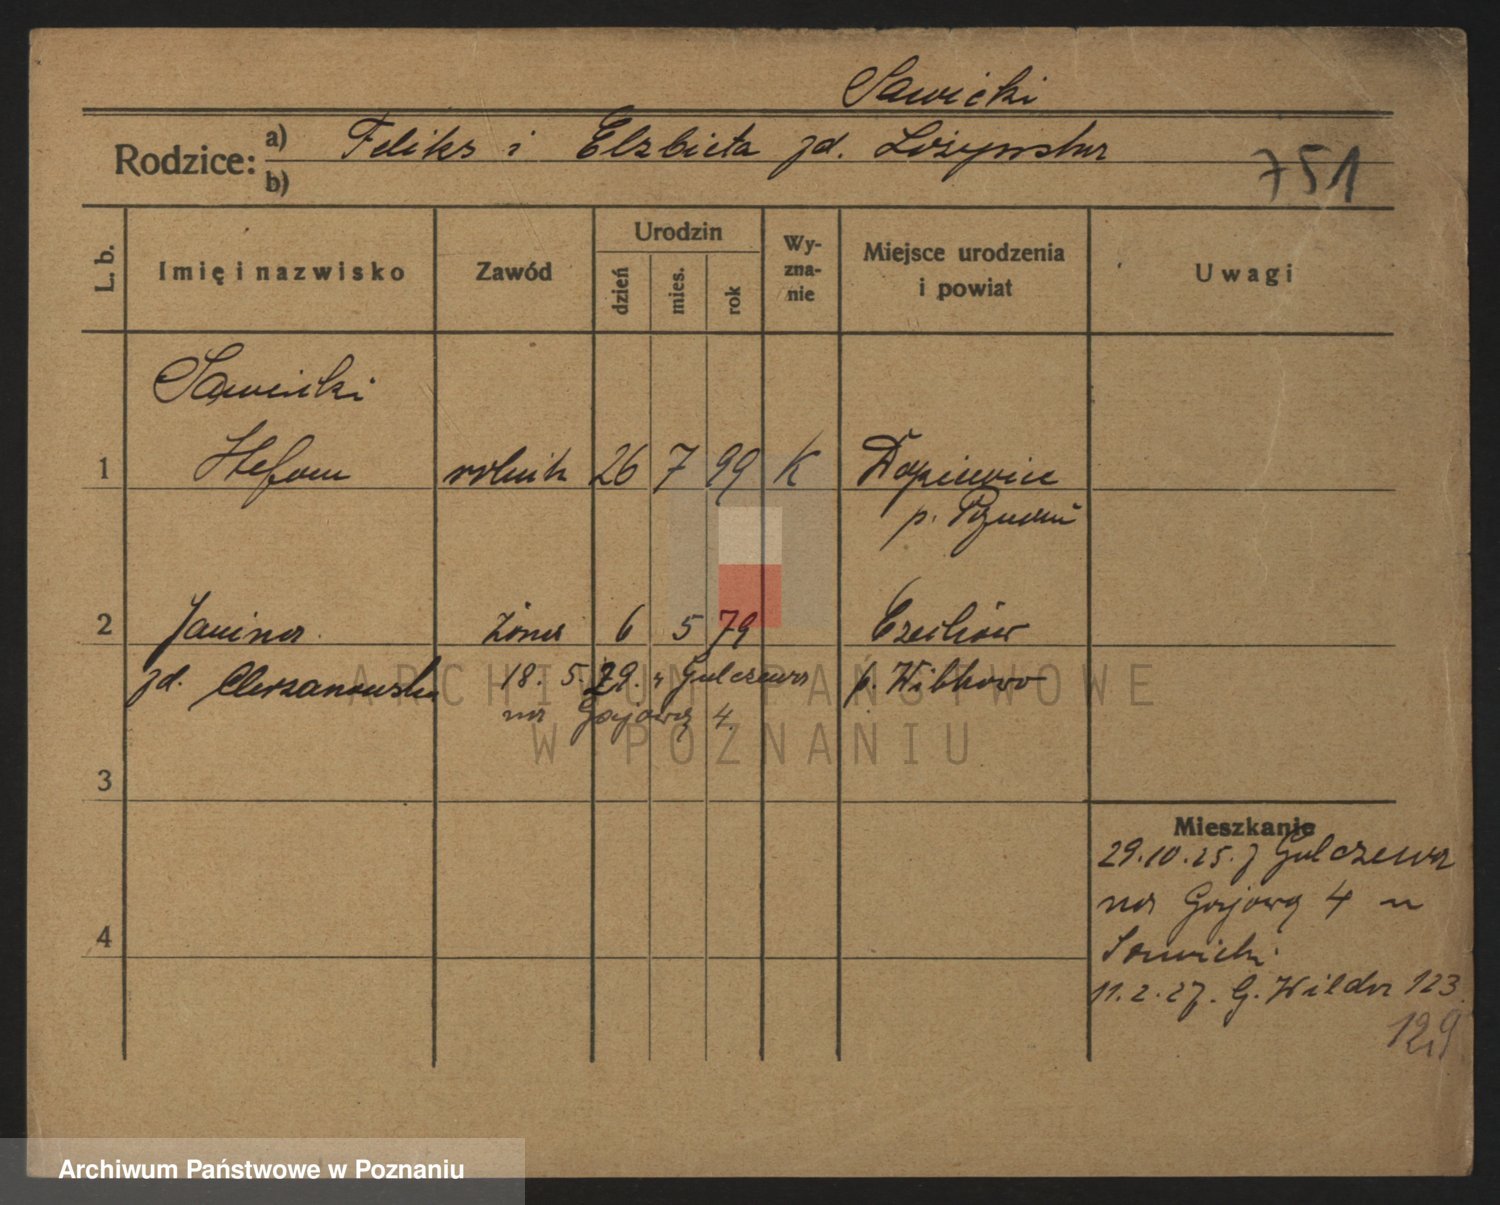 Sawicki
Rodzice: a) Feliks i Elżbieta zd. Łożyńska
b)
751
L. b.
Imię i nazwisko
Zawód
Urodzin
dzień
mies.
rok
Wy-
zna-
nie
Miejsce urodzenia
i powiat
Uwagi
Sawicki
1 Stefan rolnik 26 7 99 K Dopiewice
p. Poznań
2 Janina żona 6 5 79 Czechów
zd. 18. 5. 29. " Gulczewa p. Witkowo
na Gajową 4
3
4
Mieszkanie
29.10.25. z Gulczewa
na Gajową 4 u
Sawicki
11.2.27. G. Wilda 123
129
ARCHIWUM PAŃSTWOWE
W POZNANIU
Archiwum Państwowe w Poznaniu